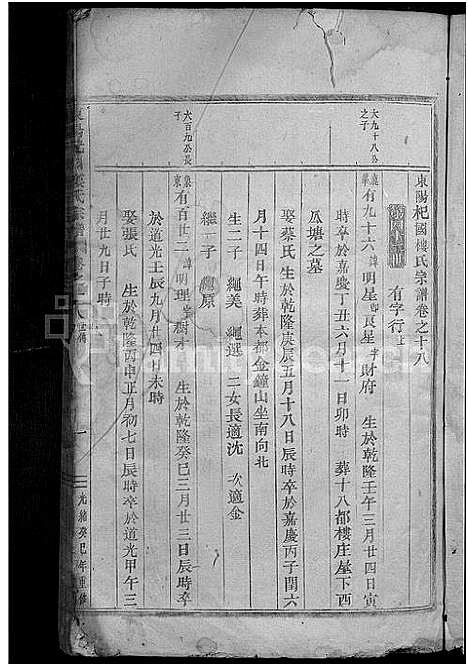 東陽杞國樓氏宗譜卷之十八
有字行上
大九十八公
之子
有九十六 諱明星 字財府 生於乾隆壬午三月廿四日寅
時卒於嘉慶丁丑六月十一日卯時 葬十八都樓庄屋下西
瓜塘之墓
娶蔡氏 生於乾隆庚辰五月十八日辰時卒於嘉慶丙子閏六
月十四日午時葬本都金鐘山坐南向北
生二子 繩美 繩選 二女長適沈 次適金
繼一子 繩原
大百九公長
子
有百廿二 諱明理 字樹才 生於乾隆癸巳三月廿三日辰時卒
於道光壬辰九月廿四日未時
娶張氏 生於乾隆丙申正月初七日辰時卒於道光甲午三
月廿九日子時
氏宗譜
一
光緒癸巳年重修